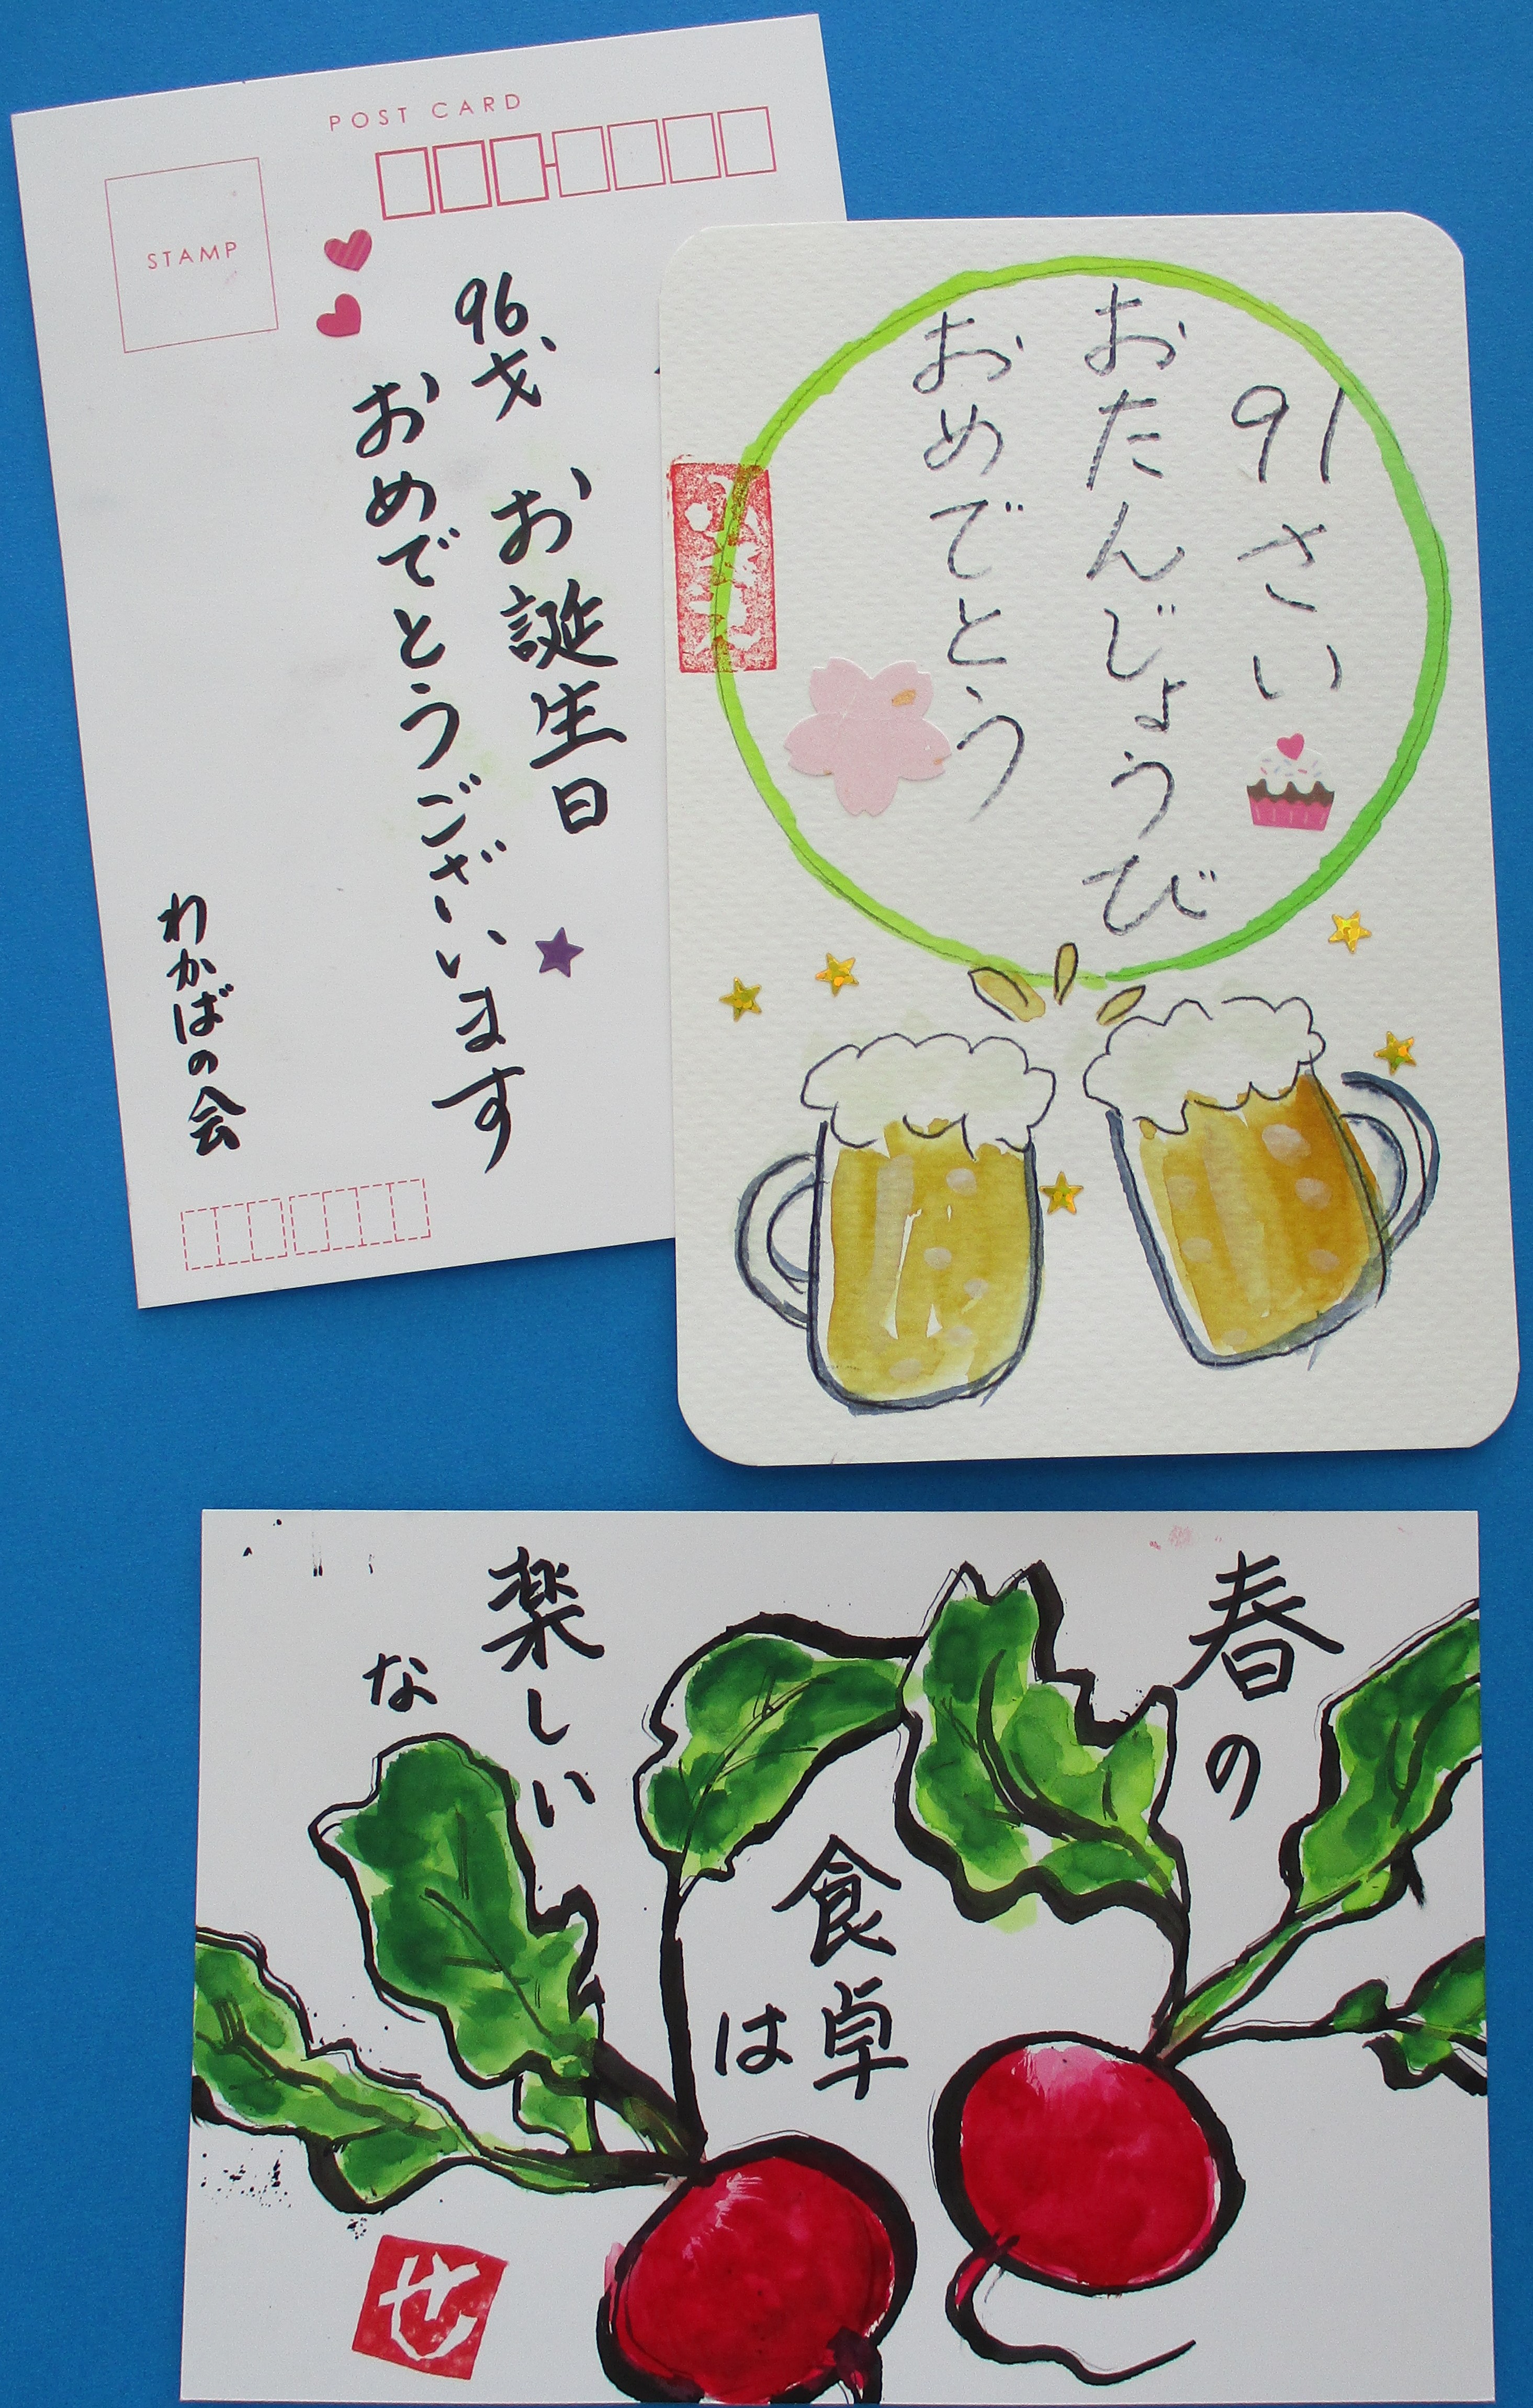 POST CARD
STAMP
96才 お誕生日
おめでとうございます
わかばの会
91さい
おたんじょうび
おめでとう
春の
食卓
は
楽しい
な
せ